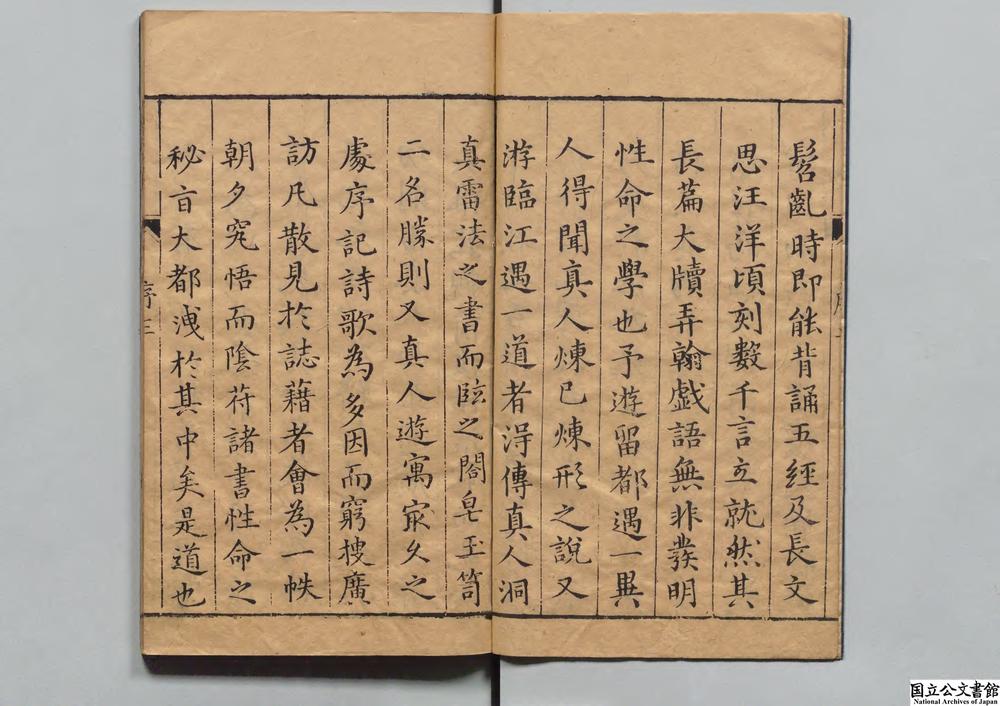 髫齓時即能背誦五經及長文
思汪洋頃刻數千言立就然其
長篇大牘弄翰戲語無非發明
性命之學也予遊留都遇一異
人得聞真人煉已煉形之說又
游臨江遇一道者得傳真人洞
真雷法之書而臨之閤皂玉笥
二名勝則又真人遊寓最久之
處序記詩歌為多因而窮搜廣
訪凡散見於誌藉者會為一帙
朝夕究悟而陰符諸書性命之
秘旨大都洩於其中矣是道也
序三
国立公文書館
National Archives of Japan